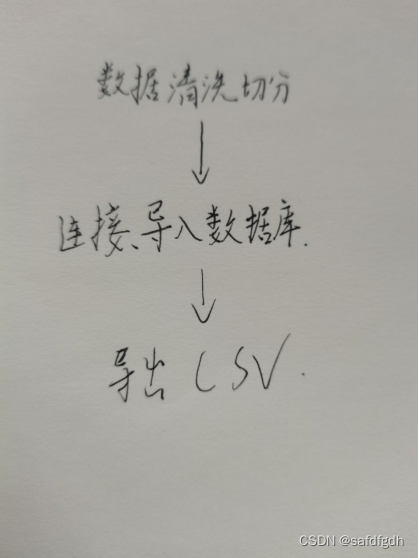 数据清洗切分
↓
连接、导入数据库.
↓
导出 CSV.
CSDN @safdfgdh